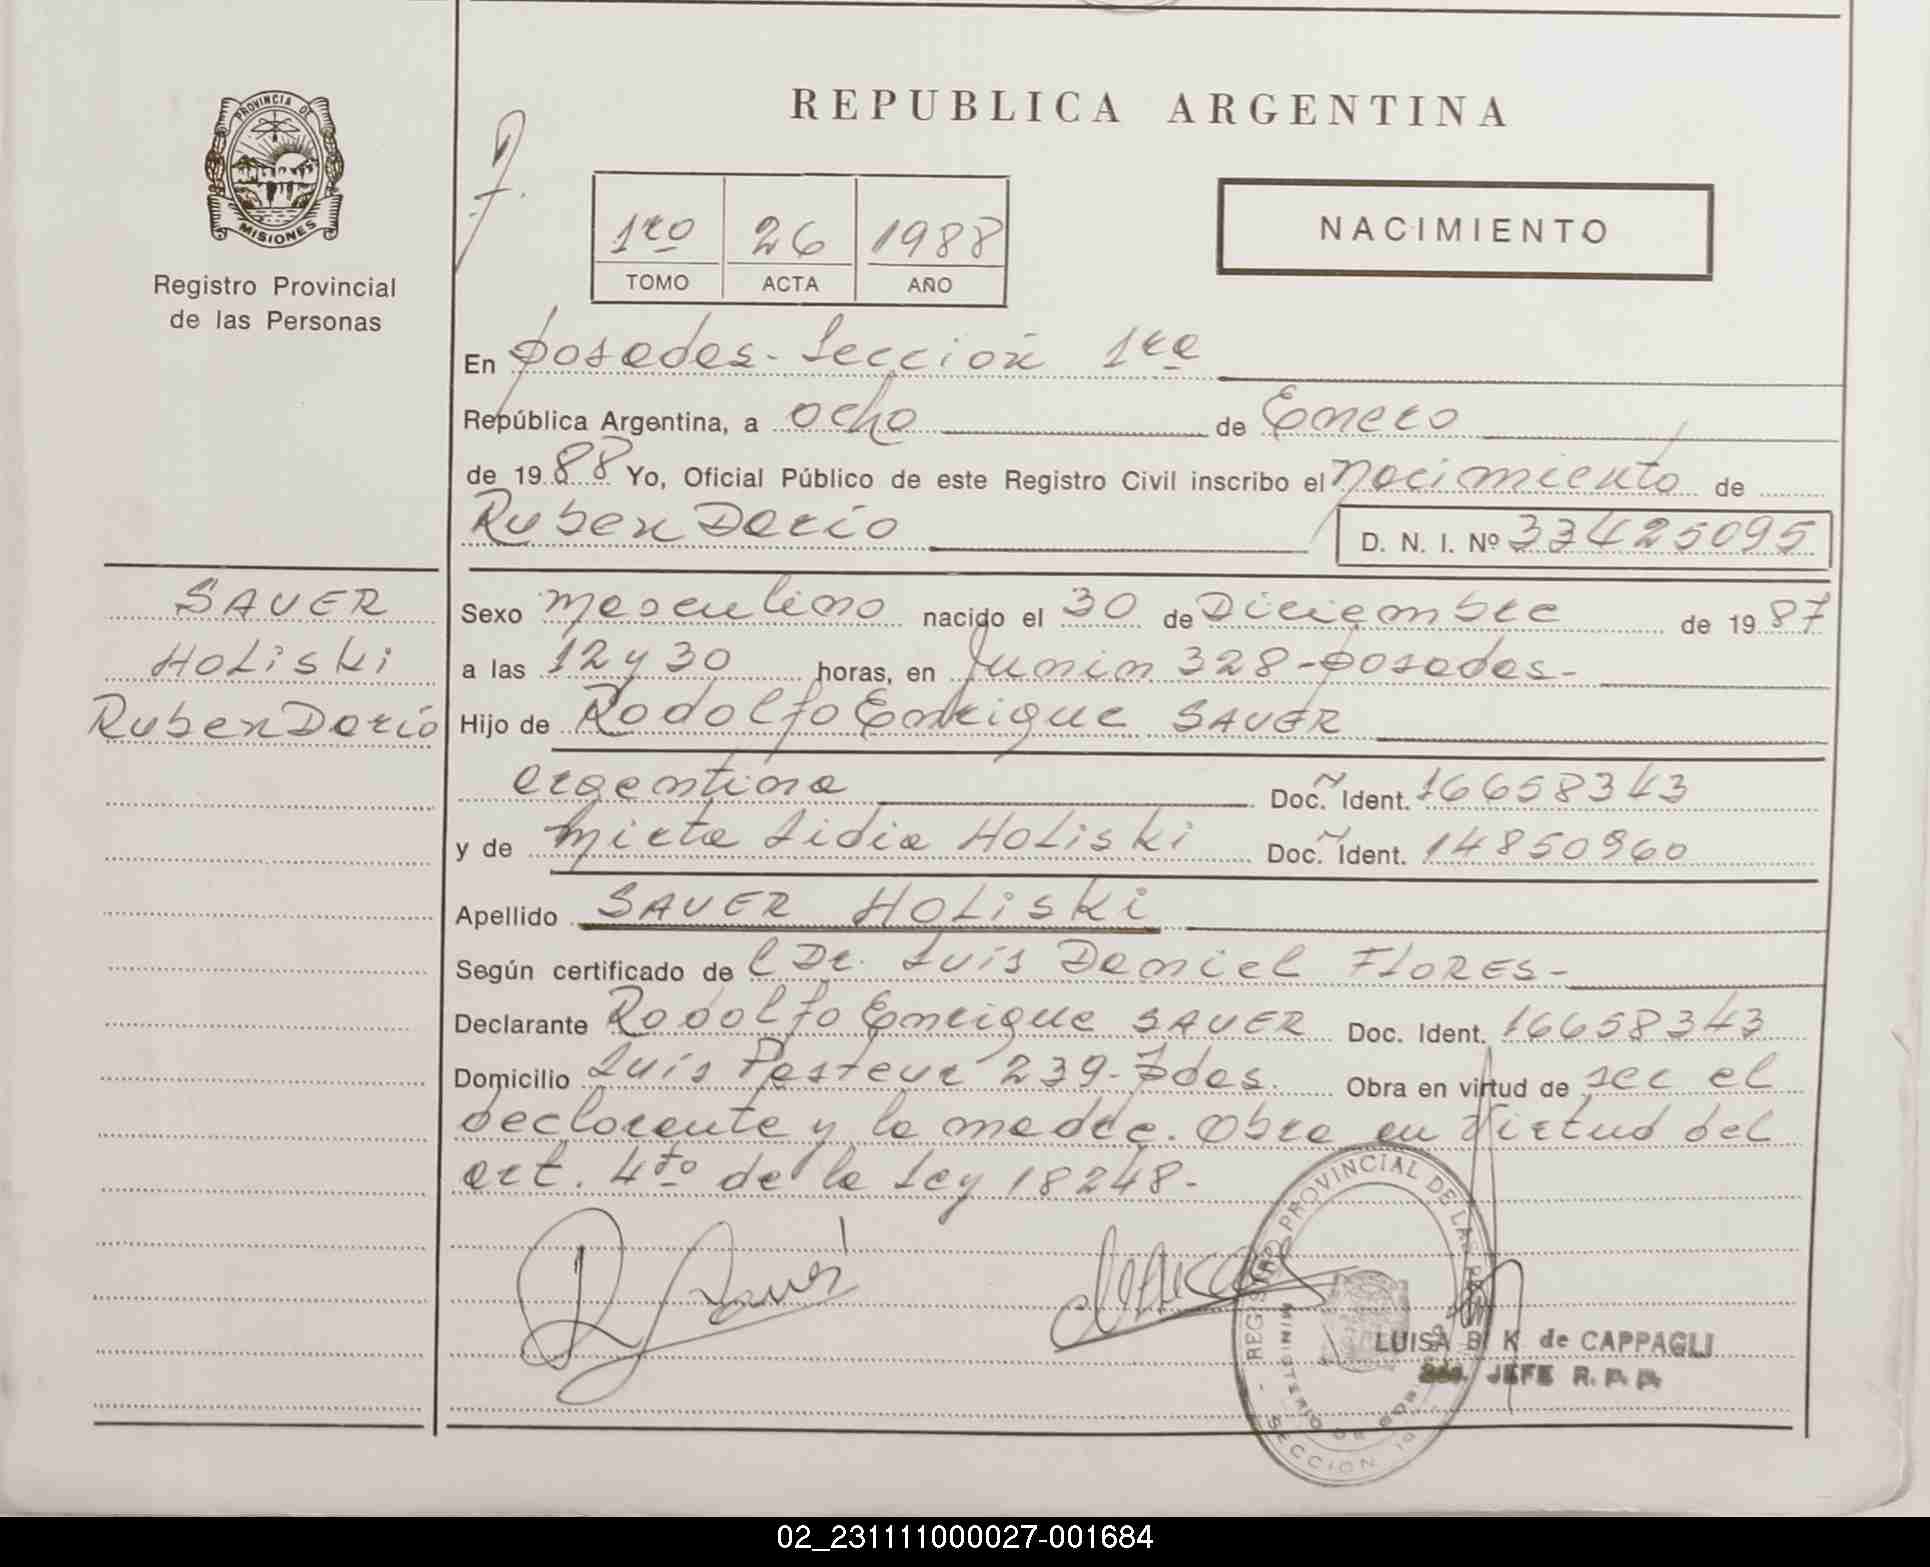 REPUBLICA ARGENTINA
PROVINCIA DE
MISIONES
Registro Provincial
de las Personas
1ro 26 1988
TOMO ACTA AÑO
NACIMIENTO
En Posadas - Sección 1ra
República Argentina, a ocho de Enero
de 1988 Yo, Oficial Público de este Registro Civil inscribo el nacimiento de
Ruben Darío D. N. I. Nº 33425095
SAUER
HOLiski
Ruben Darío
Sexo masculino nacido el 30 de Diciembre de 1987
a las 12 y 30 horas, en Junin 328 - Posadas -
Hijo de Rodolfo Enrique SAUER
argentina Doc. Ident. 16658343
y de Mirta Lidia HOLiski Doc. Ident. 14850960
Apellido SAUER HOLiski
Según certificado de l Dr. Luís Daniel FLORES -
Declarante Rodolfo Enrique SAUER Doc. Ident. 16658343
Domicilio Luís Pasteur 239 - Pdas. Obra en virtud de ser el
declarante y la madre. Obra en virtud del
art. 4to de la Ley 18248 -
REGISTRO PROVINCIAL DE LAS
MINISTERIO DE
SECCION
LUISA B. K de CAPPAGLI
JEFE R. P. P.
02_231111000027-001684